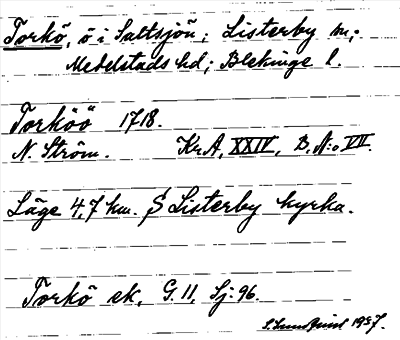 Torkö, ö i Saltsjön; Listerby sn;
Medelstads hd; Blekinge l.
Torköö 1718.
N. Ström. Kr.A, XXIV, B, N:o VII.
Läge 4,7 km. S Listerby kyrka.
Torkö ek, G. 11, Sj: 96.
S. Lundquist 1937.